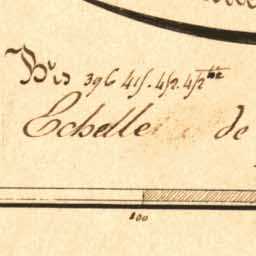 N.os 396 415. 452. 452 bis
Echelle de
100